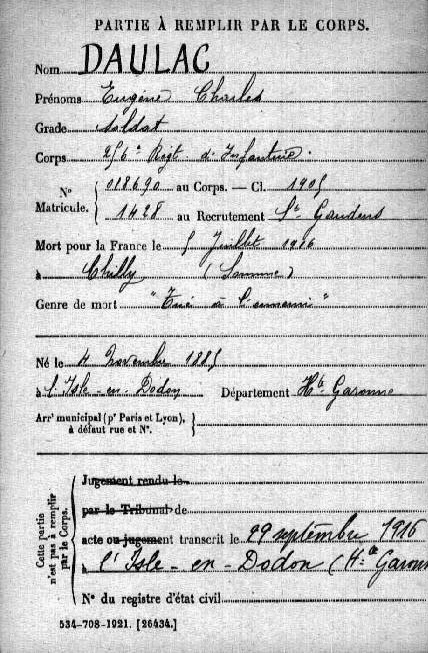 PARTIE À REMPLIR PAR LE CORPS.
Nom DAULAC
Prénoms Eugène Charles
Grade soldat
Corps 256e Régt d'Infanterie.
N° Matricule. { 018690 au Corps. — Cl. 1905
1428 au Recrutement St Gaudens
Mort pour la France le 5 Juillet 1916
à Chilly (Somme)
Genre de mort "Tué à l'ennemi"
Né le 4 Novembre 1885
à l'Isle-en-Dodon Département Hte Garonne
Arrt municipal (pr Paris et Lyon), }
à défaut rue et N°.
Cette partie
n'est pas à remplir
par le Corps.
Jugement rendu le
par le Tribunal de
acte ou jugement transcrit le 29 septembre 1916
à l'Isle-en-Dodon (Hte Garonn
N° du registre d'état civil
534-708-1921. [26434.]